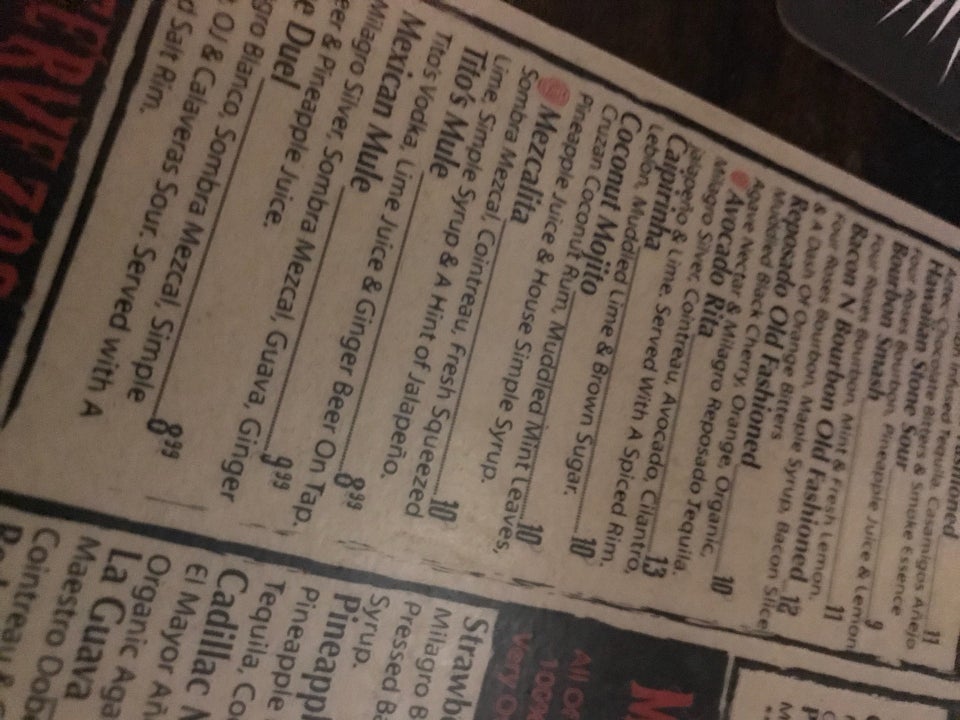 Fashioned 11
Infused Tequila, Casamigos Añejo
Aztec Chocolate Bitters & Smoke Essence
Hawaiian Stone Sour 9
Four Roses Bourbon, Pineapple Juice & Lemon
Bourbon Smash 11
Four Roses Bourbon, Mint & Fresh Lemon.
Bacon N Bourbon Old Fashioned 12
Four Roses Bourbon, Maple Syrup, Bacon Slice
& A Dash Of Orange Bitters
Reposado Old Fashioned 10
Muddled Black Cherry, Orange, Organic
Agave Nectar & Milagro Reposado Tequila.
Avocado Rita 13
Milagro Silver, Cointreau, Avocado, Cilantro,
Jalapeño & Lime. Served With A Spiced Rim.
Caipirinha 10
Leblon, Muddled Lime & Brown Sugar.
Coconut Mojito 10
Cruzan Coconut Rum, Muddled Mint Leaves,
Pineapple Juice & House Simple Syrup.
Mezcalita 10
Sombra Mezcal, Cointreau, Fresh Squeezed
Lime, Simple Syrup & A Hint of Jalapeño.
Tito's Mule 8⁹⁹
Tito's Vodka, Lime Juice & Ginger Beer On Tap.
Mexican Mule 9⁹⁹
Milagro Silver, Sombra Mezcal, Guava, Ginger
eer & Pineapple Juice.
e Duel 8⁹⁹
gro Blanco, Sombra Mezcal, Simple
, OJ & Calaveras Sour. Served With A
d Salt Rim.
ERVEZAS
M
All Of
100%
Very O
Strawbe
Milagro B
Pressed Ba
Syrup.
Pineappl
Pineapple
Tequila, Co
Cadillac M
El Mayor Añ
Organic Aga
La Guava
Maestro Dobe
Cointreau &